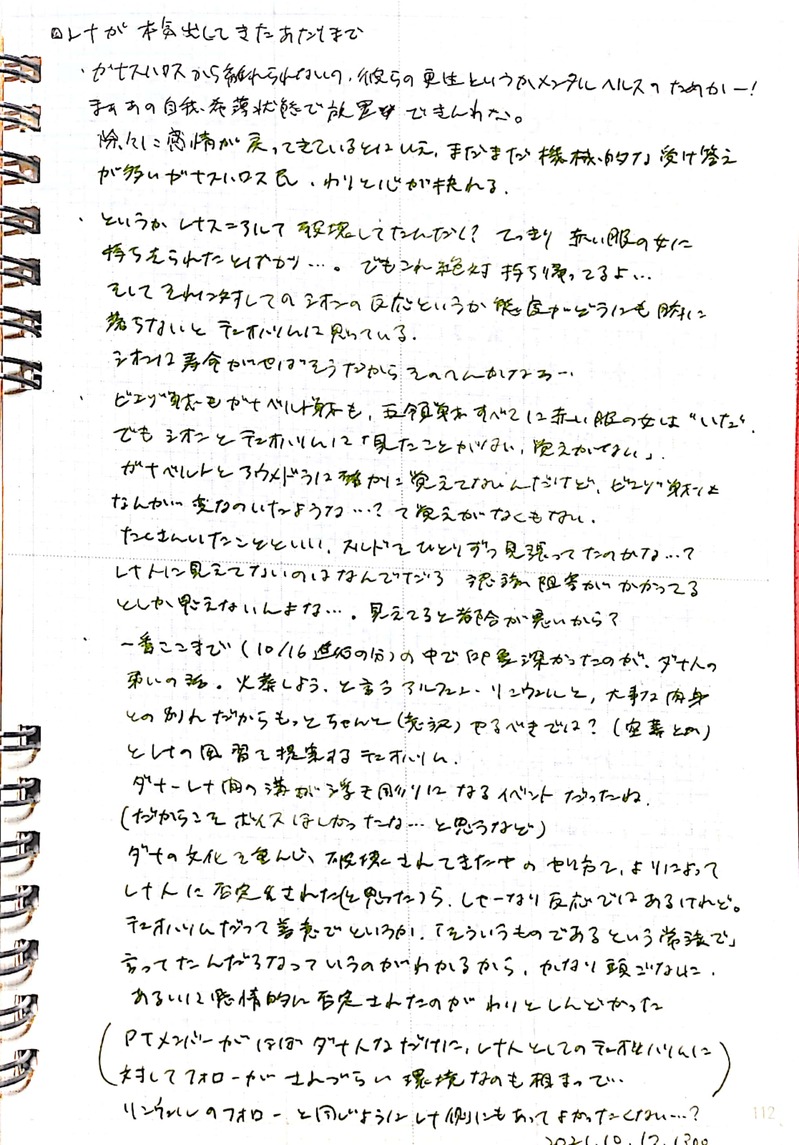 □レナが本気出してきたあたりまで
・ガナスハロスから離れられないの、彼らの更生というかメンタルヘルスのためかー!
まぁあの自我希薄状態で放置できんわな。
除々に感情が戻ってきているとはいえ、まだまだ機械的な受け答え
が多いガナスハロス民、わりと心が抉れる。
・というかレナスコアルって破壊してたんだし? てっきり赤い服の女に
持ち去られたとばかり…。でもこれ絶対持ち帰ってるよ…
そしてそれに対してのシオンの反応というか態度がどうにも腑に
落ちないとテュオハリムは思っている。
シオンは寿命がやばそうだからそのへんかなぁ…
・ビエゾ戦もガナベルト戦も、五領戦すべてに赤い服の女は"いた"。
でもシオンとテュオハリムは「見たことがない、覚えがない」。
ガナベルトとアウメドラは確かに覚えてないんだけど、ビエゾ戦は
なんか変なのいたような…?て覚えがなくもない。
たくさんいたことといい、スルドでひとりずつ見張ってたのかな…?
レナ人に見えてないのはなんでだろ 認識阻害がかかってる
としか思えないんよな…。見えてると都合が悪いから?
・一番ここまで(10/16進めの分)の中で印象深かったのが、ダナ人の
弔いの話。火葬しよう、と言うアルフェン・リンウェルと、大事な肉身
との別れだからもっとちゃんと(意訳)やるべきでは?(空葬とか)
とレナの風習で提案するテュオハリム。
ダナーレナ間の溝が浮き彫りになるイベントだったね。
(だからこそボイスほしかったな…と思うなど)
ダナの文化を重んじ、破壊されてきた中のやり方で、よりによって
レナ人に否定をされた(と思った)ら、しゃーなし反応ではあるけれど。
テュオハリムだって善意でというか、「そういうものであるという常識で」
言ってたんだろなっていうのがわかるから、かなり頭ごなしに、
あるいは感情的に否定されたのがわりとしんどかった
(PTメンバーがほぼダナ人なだけに、レナ人としてのテュオハリムに
対してフォローがされづらい環境なのも相まって…)
リンウェルのフォローと同じようにレナ側にもあってよかったくない…?
112
2021.10.17.1300